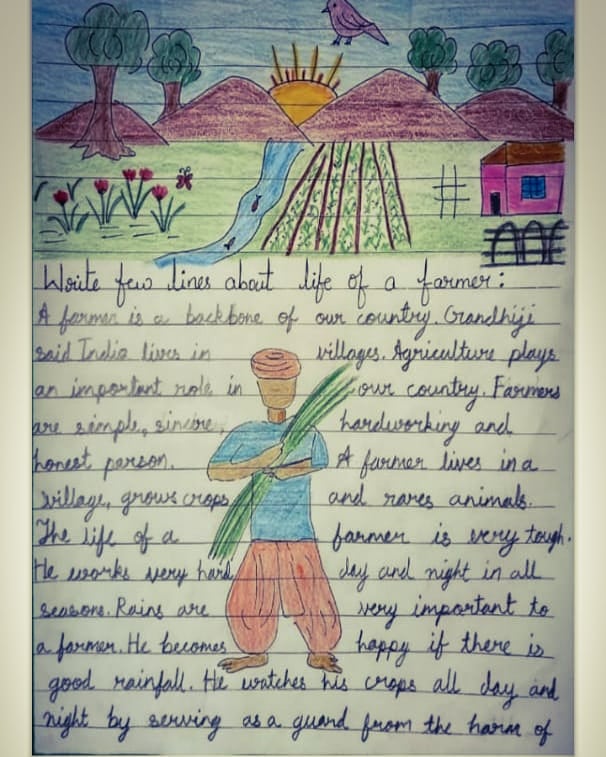 Write few lines about life of a farmer:
A farmer is a backbone of our country. Gandhiji
said India lives in villages. Agriculture plays
an important role in our country. Farmers
are simple, sincere, hardworking and
honest person. A farmer lives in a
village, grows crops and rares animals.
The life of a farmer is very tough.
He works very hard day and night in all
seasons. Rains are very important to
a farmer. He becomes happy if there is
good rainfall. He watches his crops all day and
night by serving as a guard from the harm of